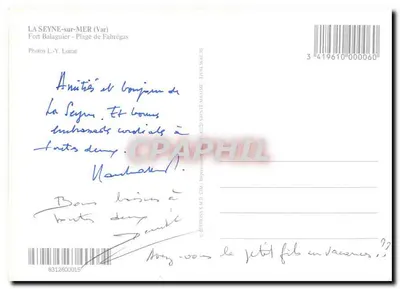 LA SEYNE-sur-MER (Var)
Fort Balaguier - Plage de Fabrégas
Photos L.-Y. Loirat
3 419610 000060
Amitiés et bonjour de
La Seyne. Et bonnes
embrassades cordiales à
toutes deux.
CPAPHIL.COM
Bons baisers à
toutes deux
Avez-vous le petit fils en vacances ??